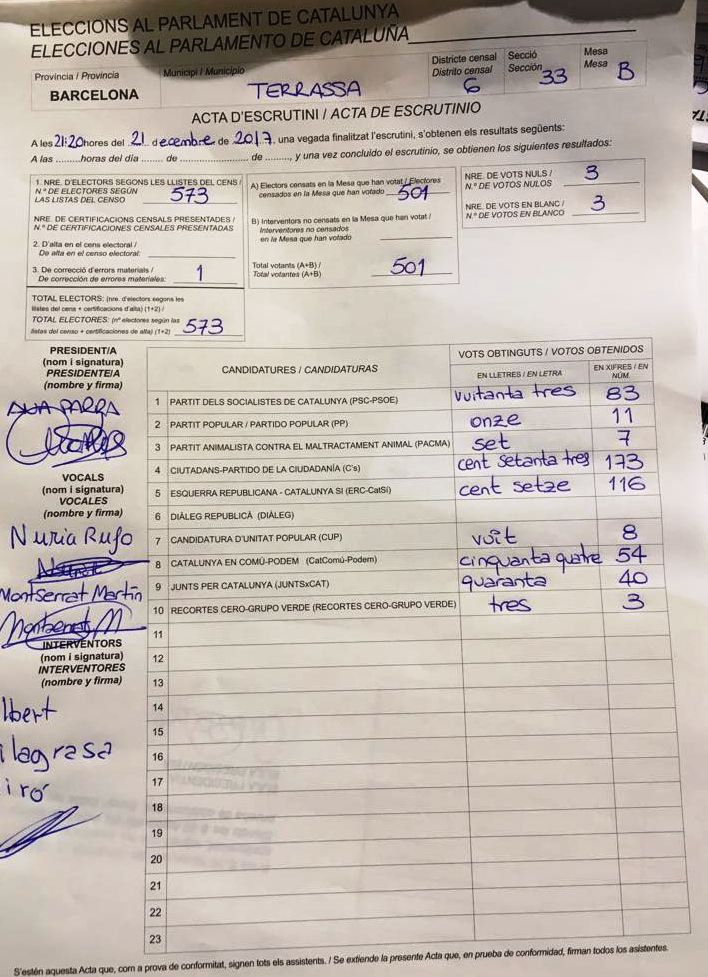 ELECCIONS AL PARLAMENT DE CATALUNYA
ELECCIONES AL PARLAMENTO DE CATALUÑA
Província / Provincia
BARCELONA
Municipi / Municipio
TERRASSA
Districte censal
Distrito censal
6
Secció
Sección 33
Mesa
Mesa B
ACTA D'ESCRUTINI / ACTA DE ESCRUTINIO
A les 21:20 hores del 21 decembre de 2017, una vegada finalitzat l'escrutini, s'obtenen els resultats següents:
A las ........horas del día ....... de ...................... de ........, y una vez concluido el escrutinio, se obtienen los siguientes resultados:
1. NRE. D'ELECTORS SEGONS LES LLISTES DEL CENS /
N.º DE ELECTORES SEGÚN
LAS LISTAS DEL CENSO 573
NRE. DE CERTIFICACIONS CENSALS PRESENTADES /
N.º DE CERTIFICACIONES CENSALES PRESENTADAS
2. D'alta en el cens electoral /
De alta en el censo electoral:
3. De correcció d'errors materials /
De corrección de errores materiales: 1
TOTAL ELECTORS: (nre. d'electors segons les
llistes del cens + certificacions d'alta) (1+2) /
TOTAL ELECTORES: (nº electores según las
listas del censo + certificaciones de alta) (1+2) 573
A) Electors censats en la Mesa que han votat / Electores
censados en la Mesa que han votado 501
B) Interventors no censats en la Mesa que han votat /
Interventores no censados
en la Mesa que han votado
Total votants (A+B) /
Total votantes (A+B) 501
NRE. DE VOTS NULS /
N.º DE VOTOS NULOS 3
NRE. DE VOTS EN BLANC /
N.º DE VOTOS EN BLANCO 3
PRESIDENT/A
(nom i signatura)
PRESIDENTE/A
(nombre y firma)
ANA PARRA
VOCALS
(nom i signatura)
VOCALES
(nombre y firma)
Nuria Rufo
Montserrat Martin
Montserrat M
INTERVENTORS
(nom i signatura)
INTERVENTORES
(nombre y firma)
lbert
ilagrasa
iró
CANDIDATURES / CANDIDATURAS
VOTS OBTINGUTS / VOTOS OBTENIDOS
EN LLETRES / EN LETRA
EN XIFRES / EN
NÚM.
1 PARTIT DELS SOCIALISTES DE CATALUNYA (PSC-PSOE) vuitanta tres 83
2 PARTIT POPULAR / PARTIDO POPULAR (PP) onze 11
3 PARTIT ANIMALISTA CONTRA EL MALTRACTAMENT ANIMAL (PACMA) set 7
4 CIUTADANS-PARTIDO DE LA CIUDADANÍA (C's) cent setanta tres 173
5 ESQUERRA REPUBLICANA - CATALUNYA SI (ERC-CatSí) cent setze 116
6 DIÀLEG REPUBLICÀ (DIÀLEG)
7 CANDIDATURA D'UNITAT POPULAR (CUP) vuit 8
8 CATALUNYA EN COMÚ-PODEM (CatComú-Podem) cinquanta quatre 54
9 JUNTS PER CATALUNYA (JUNTSxCAT) quaranta 40
10 RECORTES CERO-GRUPO VERDE (RECORTES CERO-GRUPO VERDE) tres 3
11
12
13
14
15
16
17
18
19
20
21
22
23
S'estén aquesta Acta que, com a prova de conformitat, signen tots els assistents. / Se extiende la presente Acta que, en prueba de conformidad, firman todos los asistentes.